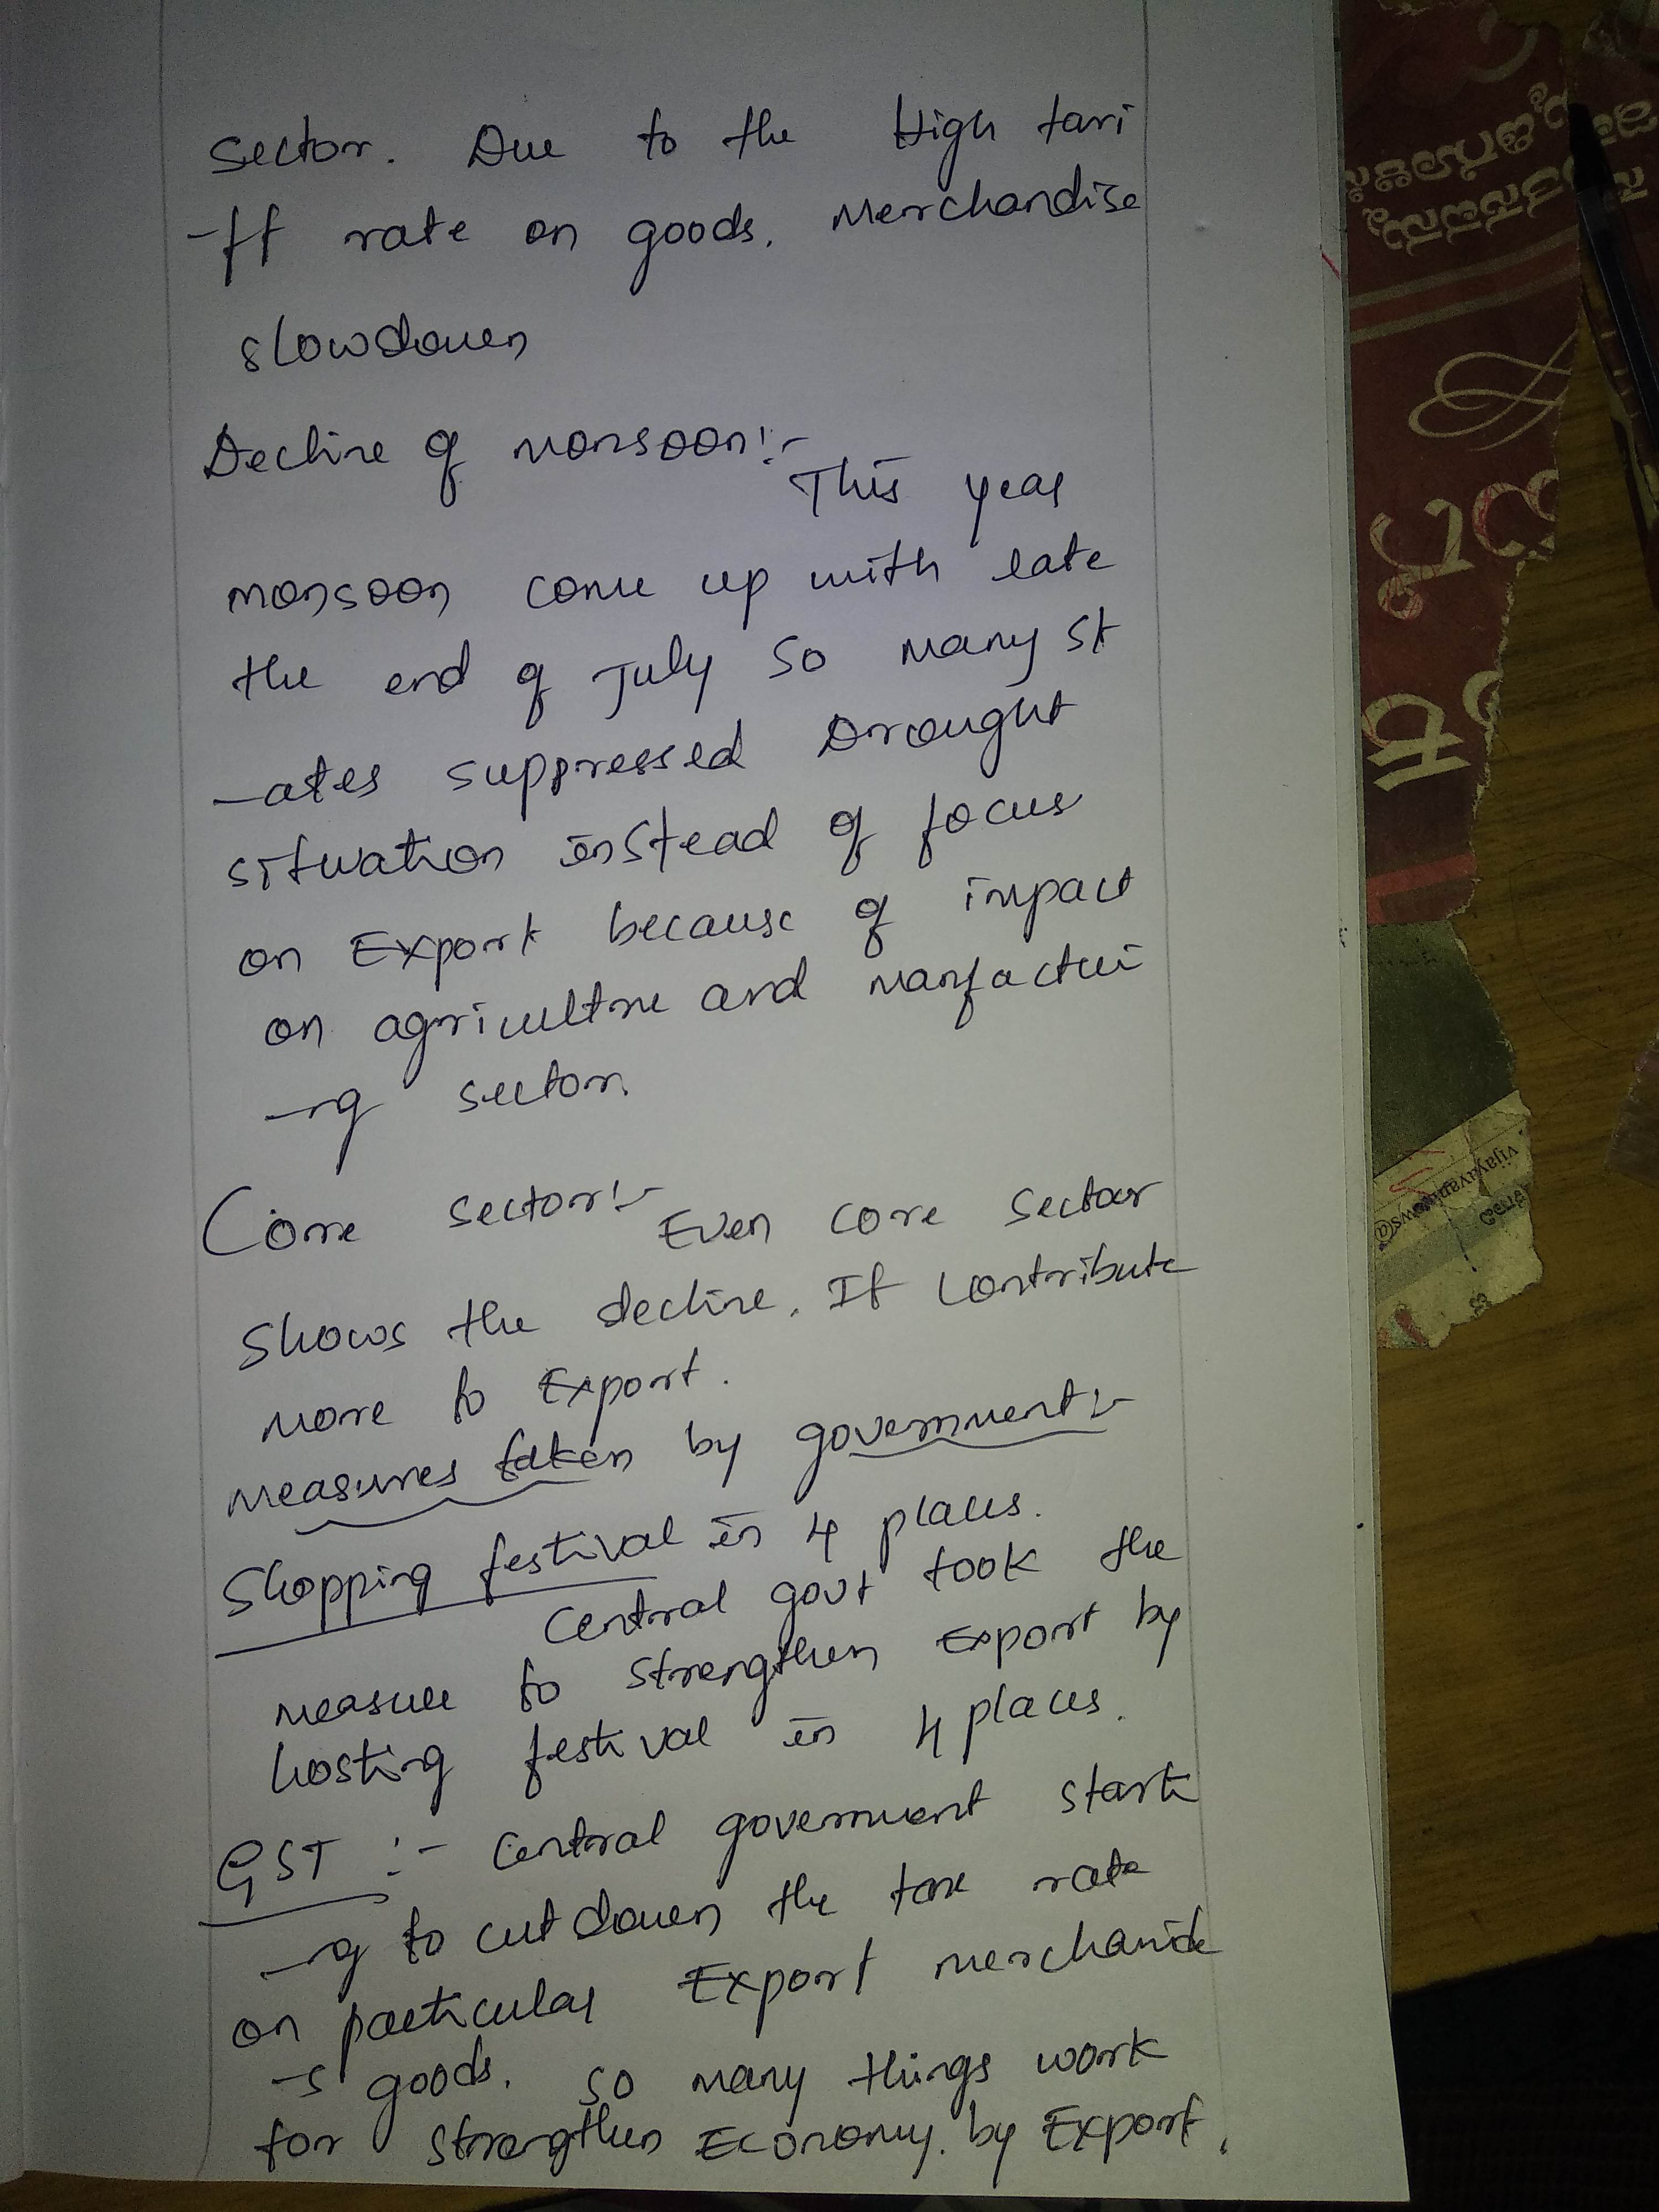 Sector. Due to the High tari
-ff rate on goods. Merchandise
slowdown
Decline of Monsoon:-
This year
monsoon come up with late
the end of July so many st
-ates suppressed Drought
situation instead of focus
on Export because of impact
on agriculture and Manfacturi
-ng sector.
Core sector:-
Even core sector
shows the decline. It contribute
more to Export.
Measures taken by government:-
Shopping festival in 4 places.
Central govt took the
measure to strengthen Export by
hosting festival in 4 places.
GST :- Central government starti
-ng to cut down the tax rate
on particular Export merchandise
-s goods. so many things work
for strengthen Economy. by Export.
vijayavani